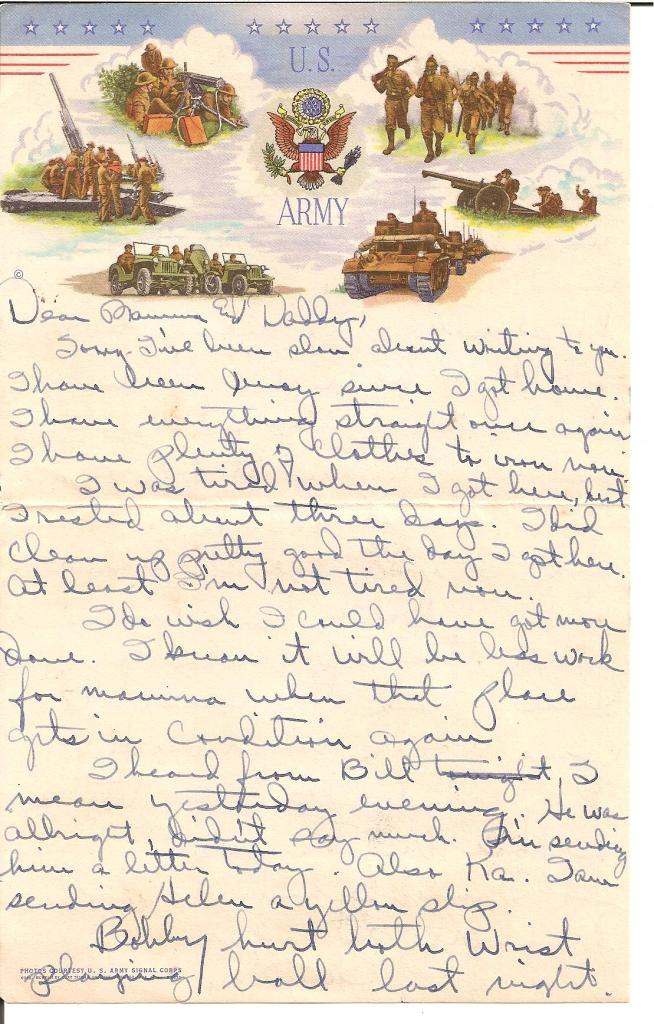 U.S.
ARMY
©
Dear Mamma and Daddy,
Sorry I've been slow about writing to you.
I have been busy since I got home.
I have everything straight once again
I have plenty of clothes to iron now
I was tired when I got here, but
I rested about three days. I did
clean up pretty good the day I got here.
At least I'm not tired now.
I do wish I could have got more
done. I know it will be less work
for mamma when that place
gets in condition again
I heard from Bill tonight, I
mean yesterday evening. He was
allright, didn't say much. I'm sending
him a letter today. Also Ka. I am
sending Helen a yellow slip.
Bobby hurt both wrist
PHOTOS COURTESY U. S. ARMY SIGNAL CORPS
playing ball last night.